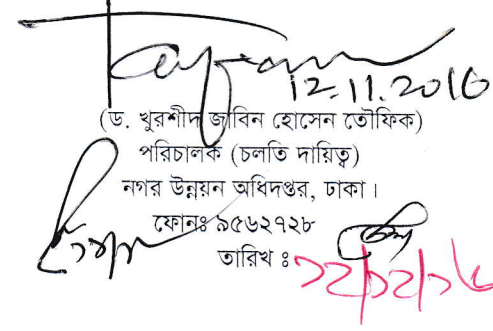 12.11.2016
(ড. খুরশীদ জাবিন হোসেন তৌফিক)
পরিচালক (চলতি দায়িত্ব)
নগর উন্নয়ন অধিদপ্তর, ঢাকা।
ফোনঃ ৯৫৬২৭২৮
তারিখ ঃ ১২/১২/১৬